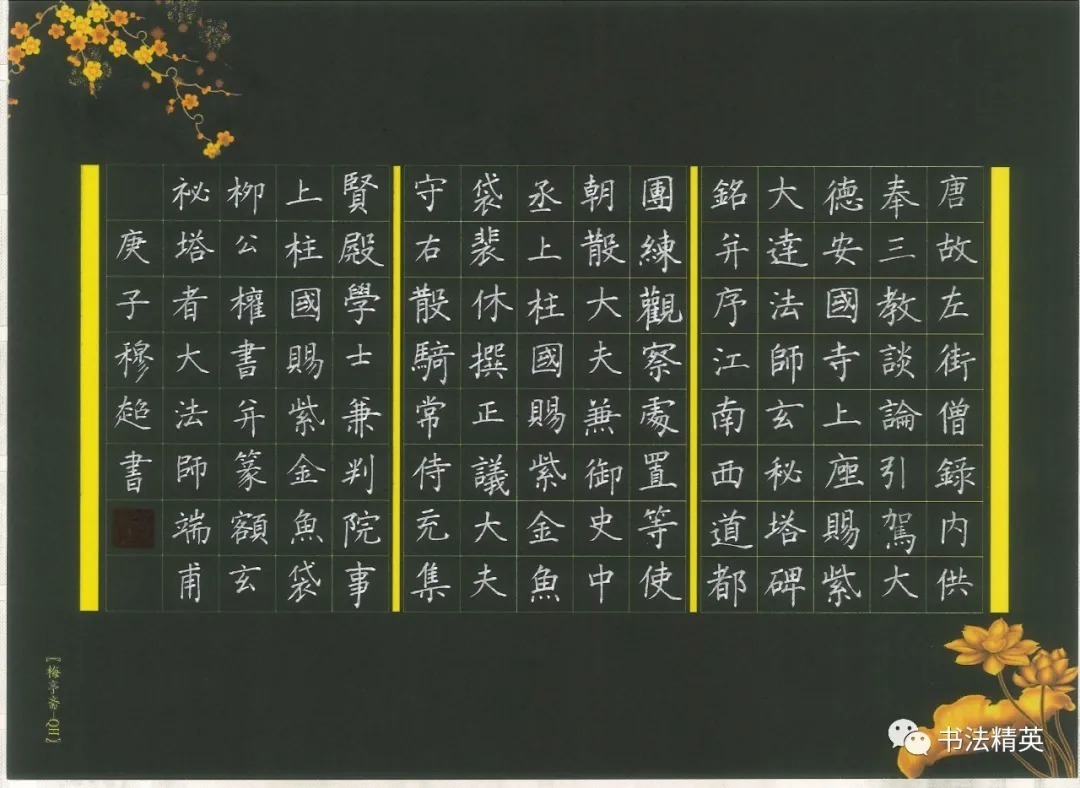 唐故左街僧録内供
奉三教談論引駕大
德安國寺上座賜紫
大達法師玄秘塔碑
銘并序江南西道都
團練觀察處置等使
朝散大夫兼御史中
丞上柱國賜紫金魚
袋裴休撰正議大夫
守右散騎常侍充集
賢殿學士兼判院事
上柱國賜紫金魚袋
柳公權書并篆額玄
祕塔者大法師端甫
庚子穆超書
『梅亭斋-QH』
书法精英